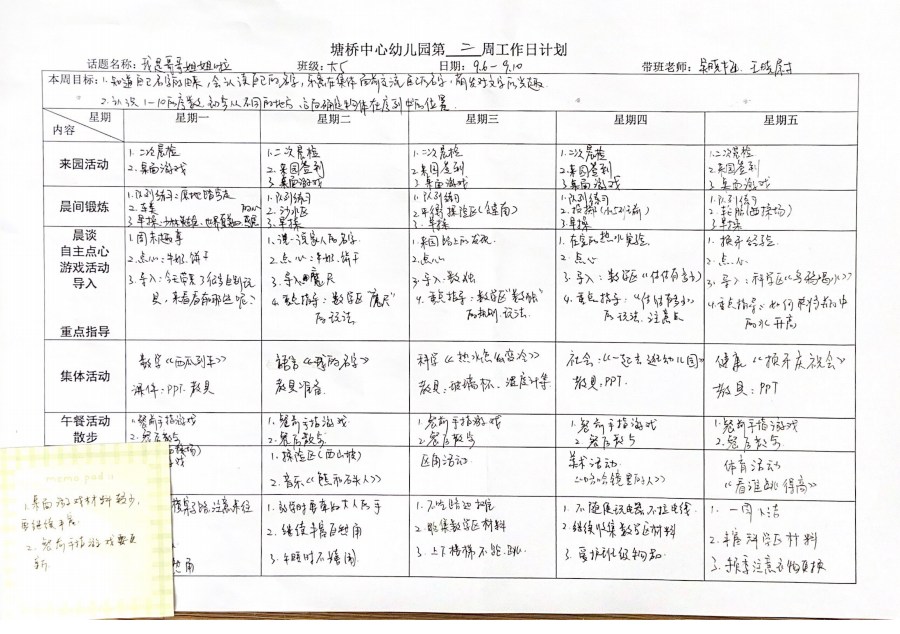 塘桥中心幼儿园第 二 周工作日计划
话题名称：我是哥哥姐姐啦 班级：大5 日期：9.6-9.10 带班老师：
本周目标：1.知道自己名字的由来，会认读自己的名字，乐意在集体面前交流自己的名字，萌发对文字的兴趣
2.认识1-10的序数，初步从不同的地点、方向确定物体在序列中的位置
星期 星期一 星期二 星期三 星期四 星期五
内容
来园活动
1.二次晨检
2.桌面游戏
1.二次晨检
2.来园签到
3.桌面游戏
1.二次晨检
2.来园签到
3.桌面游戏
1.二次晨检
2.来园签到
3.桌面游戏
1.二次晨检
2.来园签到
3.桌面游戏
晨间锻炼
1.队列练习：原地踏步走
2.
3.早操
1.队列练习
2.沙水区
3.早操
1.队列练习
2.平衡
3.早操
1.队列练习
2.投掷
3.早操
1.队列练习
2.轮胎（西操场）
3.早操
晨谈
自主点心
游戏活动
导入
重点指导
1.周末趣事
2.点心：牛奶、饼干
3.导入：今天带来了很多自制玩
具，来看看有哪些呢？
1.说一说家人的名字
2.点心：牛奶、饼干
3.导入：魔尺
4.重点指导：数学区“魔尺”
的玩法
1.来园路上的发现
2.点心
3.导入：数独
4.重点指导：数学区“数独”
的规则、玩法
1.在家的热水实验
2.点心
3.导入：数学区
4.重点指导：
的玩法、注意点
1.换牙经验
2.点心
3.导入：科学区《乌鸦喝水》
4.重点指导：如何
的水升高
集体活动
数学《西瓜列车》
课件：PPT、教具
语言《我的名字》
教具准备
科学《热水怎么变冷》
教具：玻璃杯、温度计等
社会：《一起去逛幼儿园》
教具：PPT
健康《换牙庆祝会》
教具：PPT
午餐活动
散步
1.餐前手指游戏
2.餐后散步
1.餐前手指游戏
2.餐后散步
1.餐前手指游戏
2.餐后散步
1.餐前手指游戏
2.餐后散步
1.餐前手指游戏
2.餐后散步
1.探险区（西山坡）
2.音乐《熊和石头人》
区角活动
美术活动
《哈哈镜里的人》
体育活动
《看谁跳得高》
2.继续丰富自然角
3.午睡时不讲闲
2.收集数学区材料
3.上下楼梯不能跳
2.继续收集数学区材料
1.一周小结
2.丰富科学区材料
memo pad
1.桌面游戏材料较少，
再继续丰富
2.餐前手指游戏要更
新